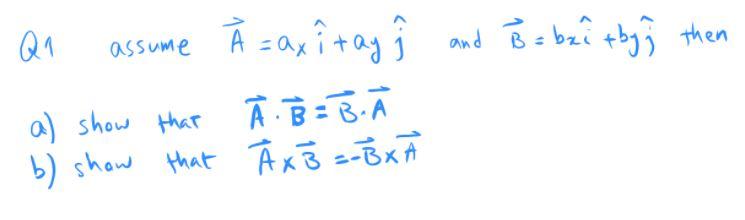 Q1 assume A⃗ = aₓ î + ay ĵ and B⃗ = bx î + by ĵ then
a) show that A⃗ . B⃗ = B⃗ . A⃗
b) show that A⃗ x B⃗ = -B⃗ x A⃗